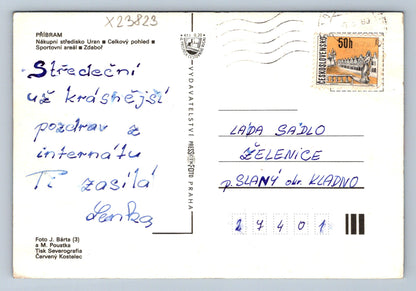 X23823
PŘÍBRAM
Nákupní středisko Uran • Celkový pohled •
Sportovní areál • Zdaboř
Středeční
už krásnější
pozdrav z
internátu
Ti zasílá
Lenka
Foto J. Bárta (3)
a M. Poustka
Tisk Severografia
Červený Kostelec
VYDAVATELSTVÍ PRESSFOTO PRAHA
ČESKOSLOVENSKO
50h
LADA SADLO
ŽELENICE
p. SLANÝ okr. KLADNO
27401